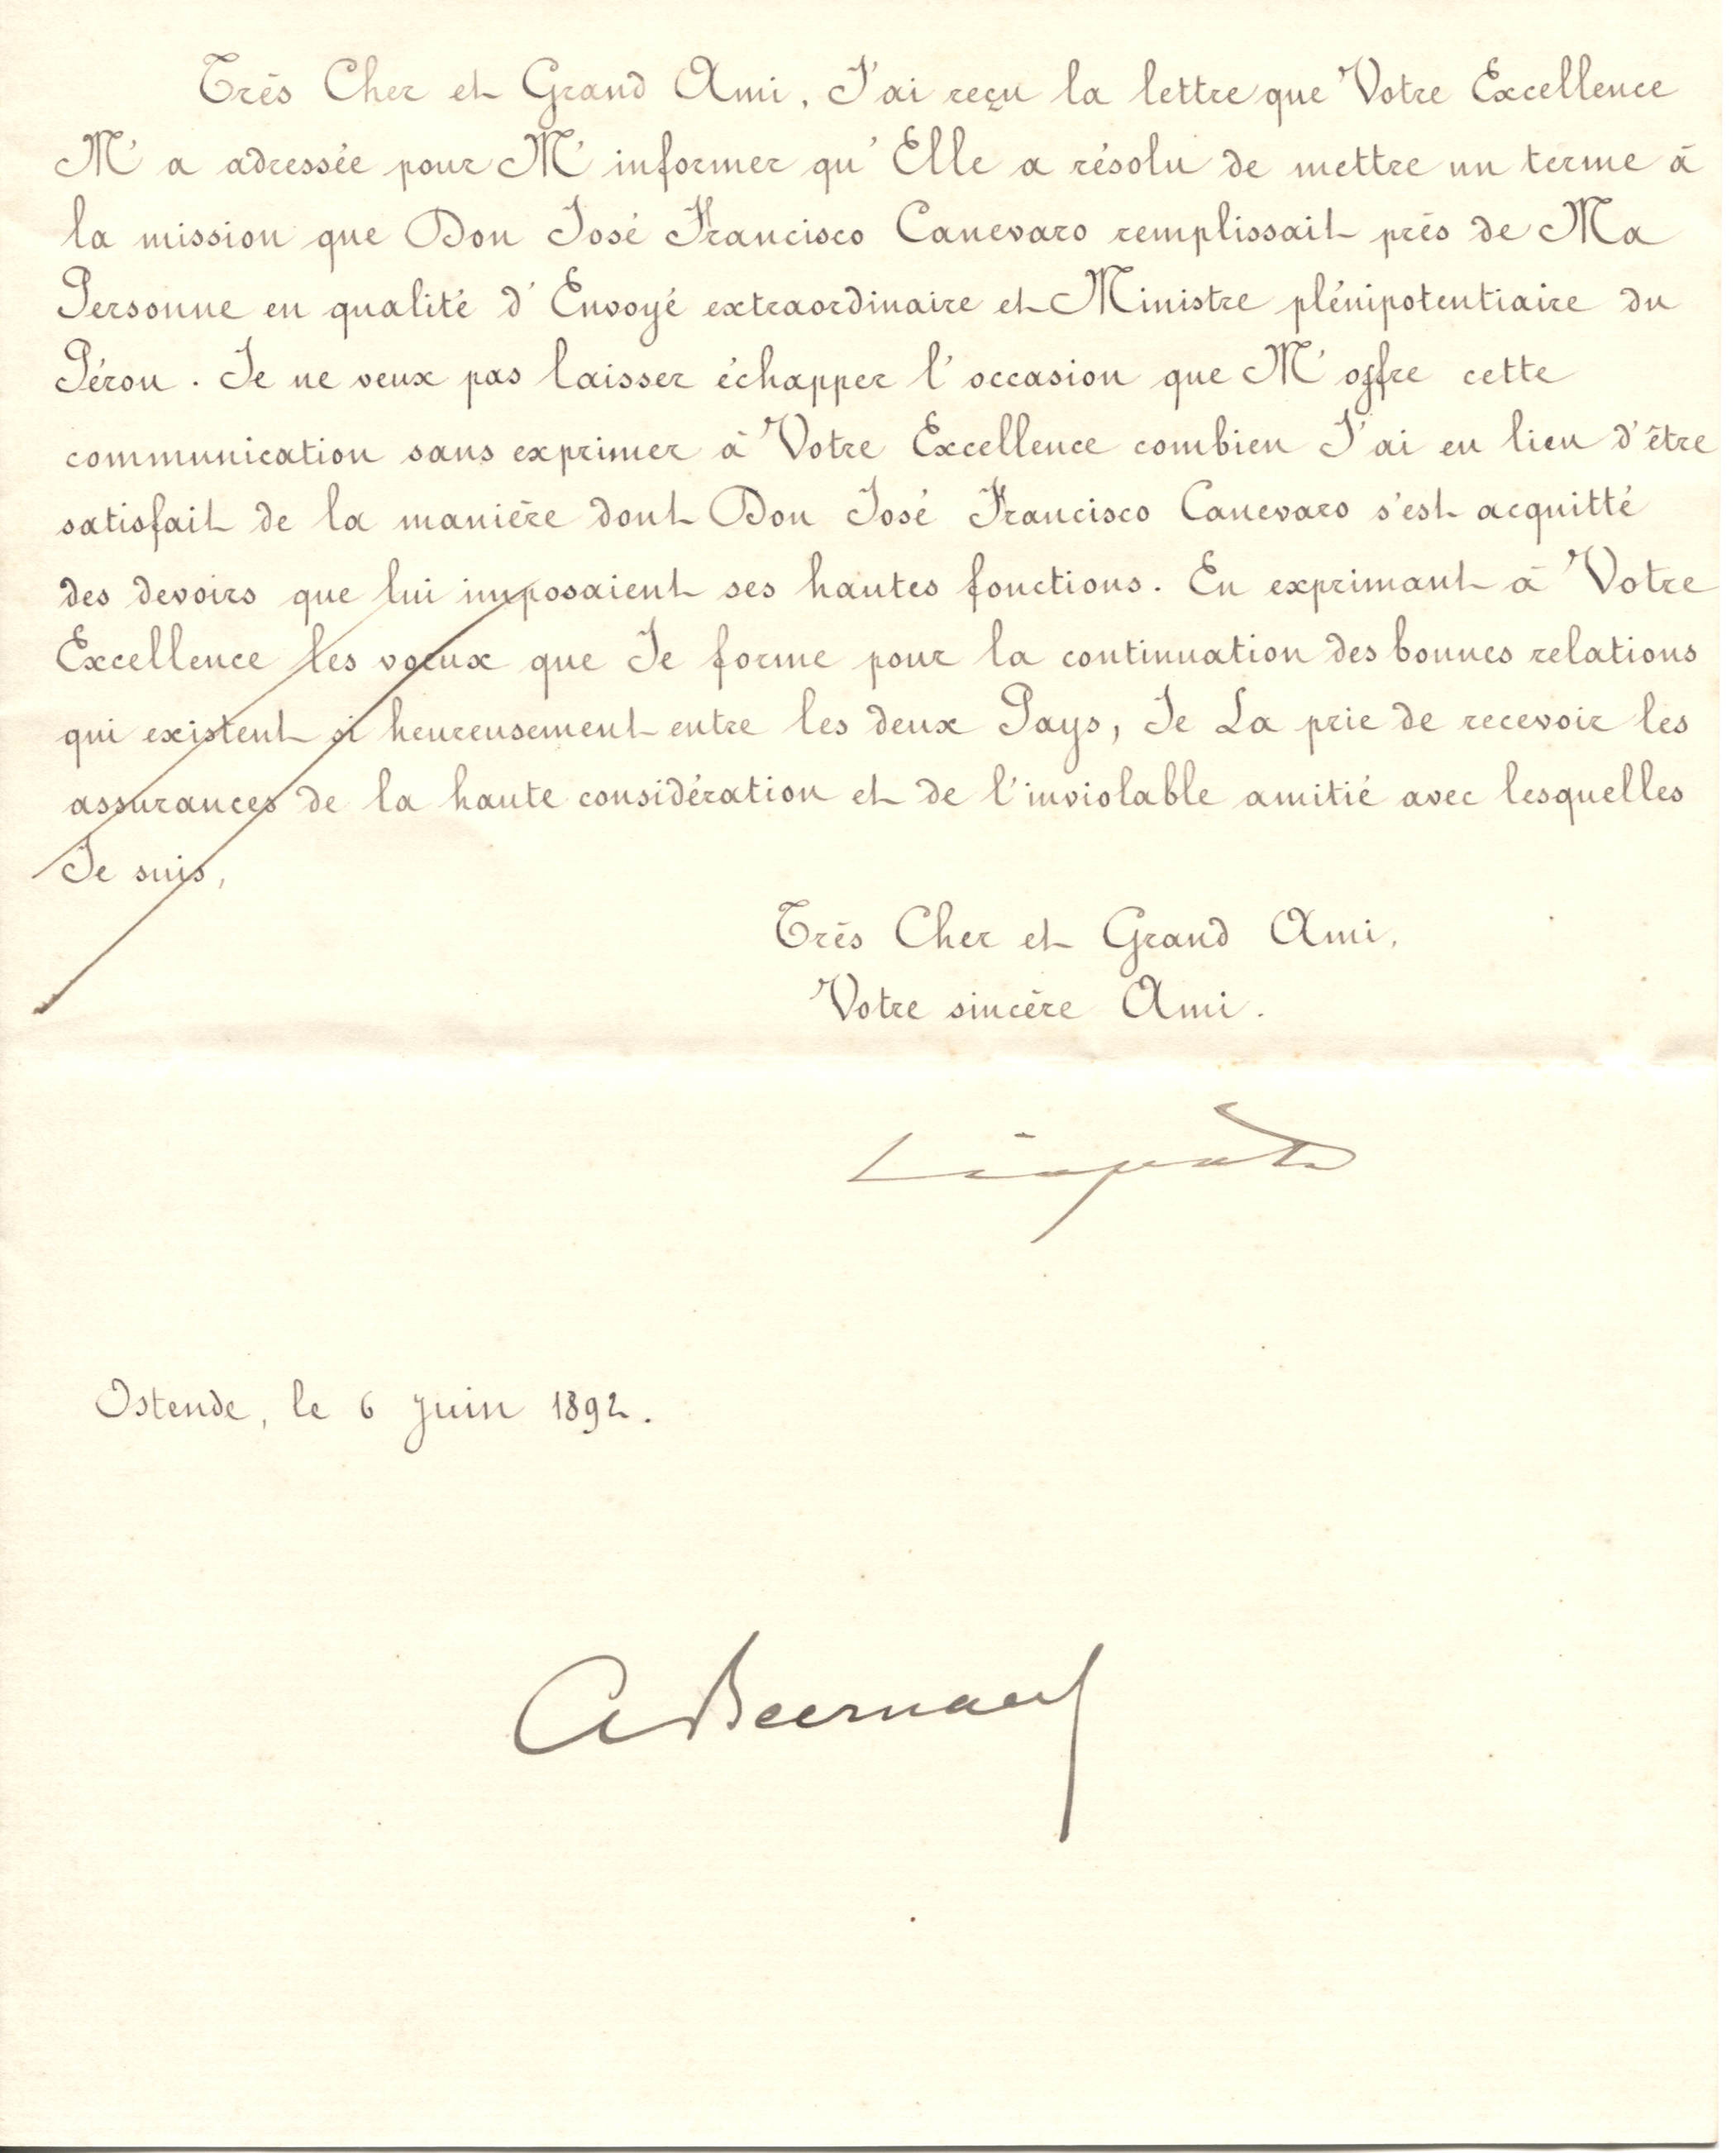 Très Cher et Grand Ami, J'ai reçu la lettre que Votre Excellence
M'a adressée pour M'informer qu'Elle a résolu de mettre un terme à
la mission que Don José Francisco Canevaro remplissait près de Ma
Personne en qualité d'Envoyé extraordinaire et Ministre plénipotentiaire du
Pérou. Je ne veux pas laisser échapper l'occasion que M'offre cette
communication sans exprimer à Votre Excellence combien J'ai eu lieu d'être
satisfait de la manière dont Don José Francisco Canevaro s'est acquitté
des devoirs que lui imposaient ses hautes fonctions. En exprimant à Votre
Excellence les vœux que Je forme pour la continuation des bonnes relations
qui existent si heureusement entre les deux Pays, Je La prie de recevoir les
assurances de la haute considération et de l'inviolable amitié avec lesquelles
Je suis,
Très Cher et Grand Ami,
Votre sincère Ami.
Léopold
Ostende, le 6 juin 1892.
A Beernaert